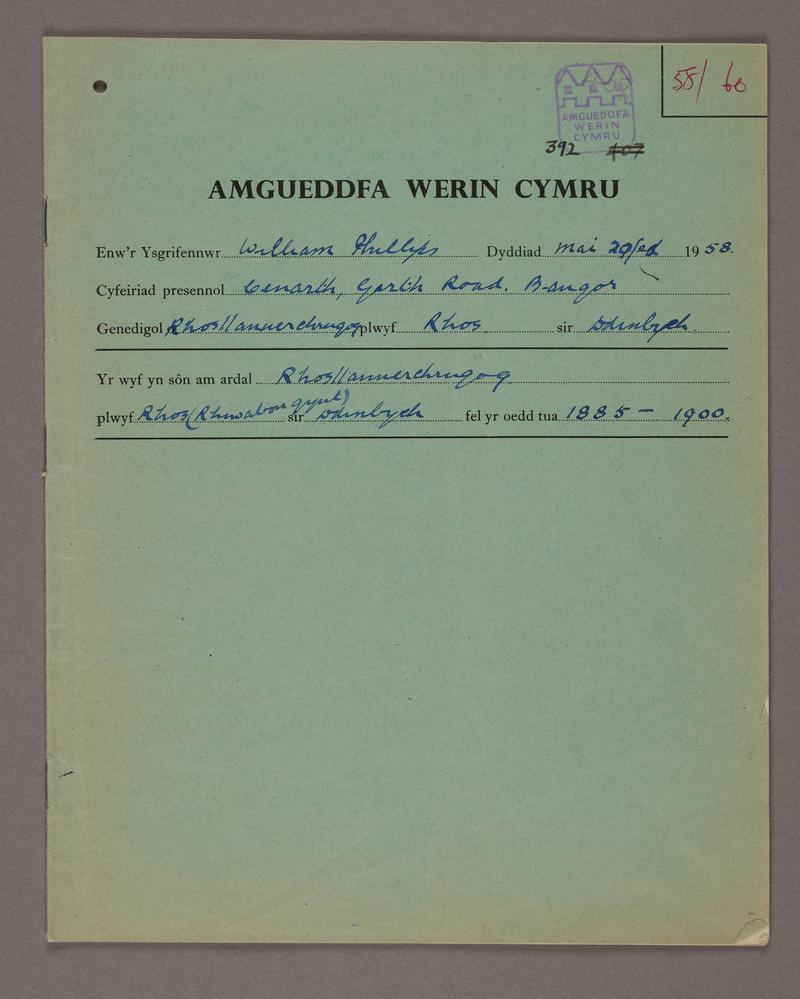 58/ 60
AMGUEDDFA
WERIN
CYMRU
392 407
AMGUEDDFA WERIN CYMRU
Enw'r Ysgrifennwr William Phillips Dyddiad Mai 29fed 1958.
Cyfeiriad presennol Cenarth, Garth Road. Bangor
Genedigol Rhosllannerchrugog plwyf Rhos sir Ddinbych
Yr wyf yn sôn am ardal Rhosllannerchrugog
plwyf Rhos (Rhiwabon gynt) sir Ddinbych fel yr oedd tua 1885 - 1900.